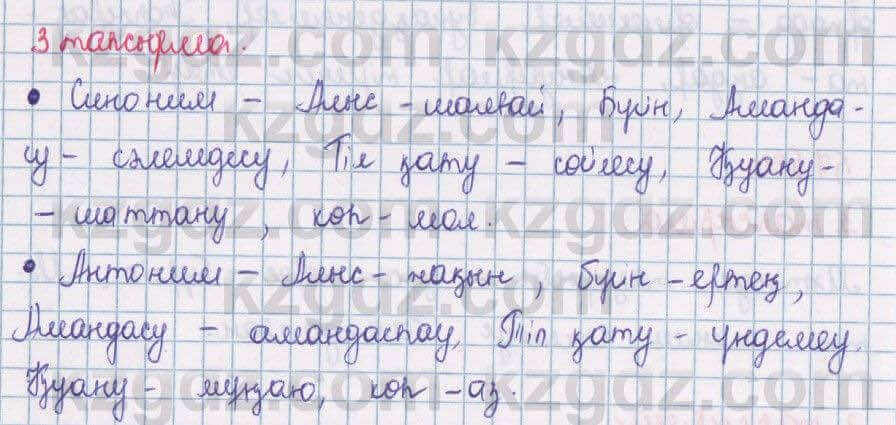 3 тапсырма.
• Синоним - Алыс - шалғай, Бүгін, Аманда-
су - сәлемдесу, Тіл қату - сөйлесу, Қуану -
- шаттану, көп - мол.
• Антоним - Алыс - жақын, Бүгін - ертең,
Амандасу - амандаспау, Тіл қату - үндемеу
Қуану - мұңаю, көп - аз.
kzgdz.com